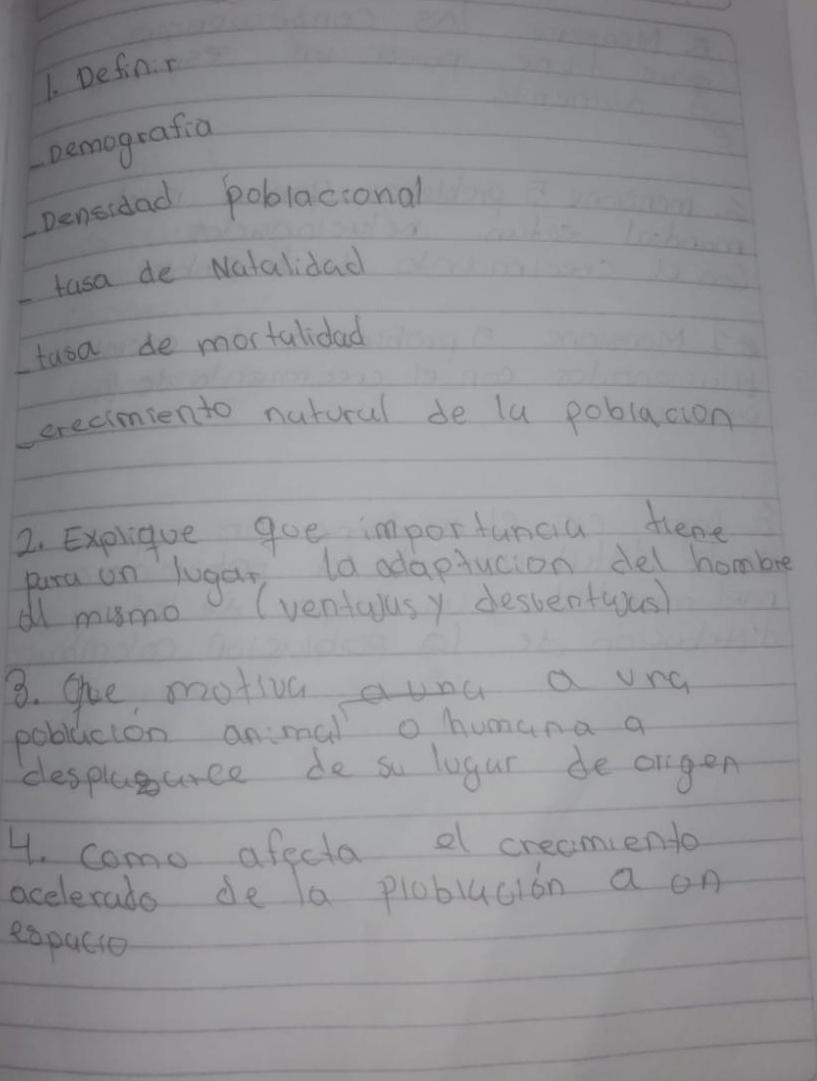 1. Definir
- Demografia
- Densidad poblacional
- tasa de Natalidad
- tasa de mortalidad
- crecimiento natural de la poblacion
2. Explique que importancia tiene
para un lugar, la adaptacion del hombre
al mismo (ventajas y desventajas)
3. Que motiva a una a una
población animal o humana a
desplazarce de su lugar de origen
4. Como afecta el crecimiento
acelerado de la problación a un
espacio